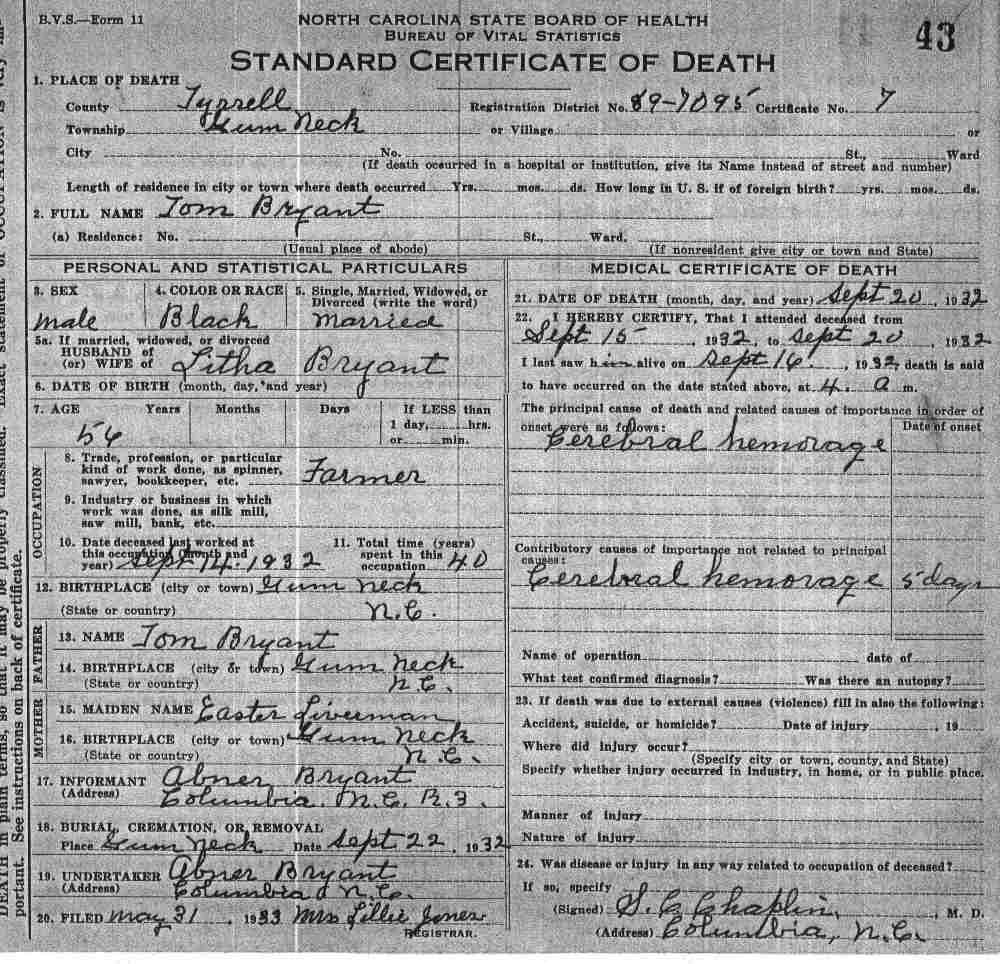 B.V.S.—Form 11
NORTH CAROLINA STATE BOARD OF HEALTH
BUREAU OF VITAL STATISTICS
43
STANDARD CERTIFICATE OF DEATH
1. PLACE OF DEATH
County Tyrrell Registration District No. 89-7095 Certificate No. 7
Township Gum Neck or Village or
City No. St., Ward
(If death occurred in a hospital or institution, give its Name instead of street and number)
Length of residence in city or town where death occurred Yrs. mos. ds. How long in U. S. if of foreign birth? yrs. mos. ds.
2. FULL NAME Tom Bryant
(a) Residence: No. St., Ward.
(Usual place of abode) (If nonresident give city or town and State)
PERSONAL AND STATISTICAL PARTICULARS
3. SEX 4. COLOR OR RACE 5. Single, Married, Widowed, or
Divorced (write the word)
male Black Married
5a. If married, widowed, or divorced
HUSBAND of
(or) WIFE of Litha Bryant
6. DATE OF BIRTH (month, day, and year)
7. AGE Years Months Days If LESS than
1 day, hrs.
or min.
56
OCCUPATION
8. Trade, profession, or particular
kind of work done, as spinner,
sawyer, bookkeeper, etc. Farmer
9. Industry or business in which
work was done, as silk mill,
saw mill, bank, etc.
10. Date deceased last worked at
this occupation (month and
year) Sept 14. 1932
11. Total time (years)
spent in this
occupation 40
12. BIRTHPLACE (city or town) Gum Neck
(State or country) N.C.
FATHER
13. NAME Tom Bryant
14. BIRTHPLACE (city or town) Gum Neck
(State or country) N.C.
MOTHER
15. MAIDEN NAME Easter Liverman
16. BIRTHPLACE (city or town) Gum Neck
(State or country) N.C.
17. INFORMANT Abner Bryant
(Address) Columbia. N.C. R.3.
18. BURIAL, CREMATION, OR REMOVAL
Place Gum Neck Date Sept 22, 1932
19. UNDERTAKER Abner Bryant
(Address) Columbia N.C.
20. FILED May 31, 1933 Mrs Lillie Jones
REGISTRAR.
MEDICAL CERTIFICATE OF DEATH
21. DATE OF DEATH (month, day, and year) Sept 20, 1932
22. I HEREBY CERTIFY, That I attended deceased from
Sept 15, 1932, to Sept 20, 1932
I last saw him alive on Sept 16, 1932, death is said
to have occurred on the date stated above, at 4. a m.
The principal cause of death and related causes of importance in order of
onset were as follows: Date of onset
Cerebral hemorage
Contributory causes of importance not related to principal
causes:
Cerebral hemorage 5 days
Name of operation date of
What test confirmed diagnosis? Was there an autopsy?
23. If death was due to external causes (violence) fill in also the following:
Accident, suicide, or homicide? Date of injury , 19
Where did injury occur?
(Specify city or town, county, and State)
Specify whether injury occurred in industry, in home, or in public place.
Manner of injury
Nature of injury
24. Was disease or injury in any way related to occupation of deceased?
If so, specify
(Signed) S. C. Chaplin, M. D.
(Address) Columbia, N.C.
DEATH in plain terms, so that it may be properly classified. Exact statement of OCCUPATION is very
portant. See instructions on back of certificate.